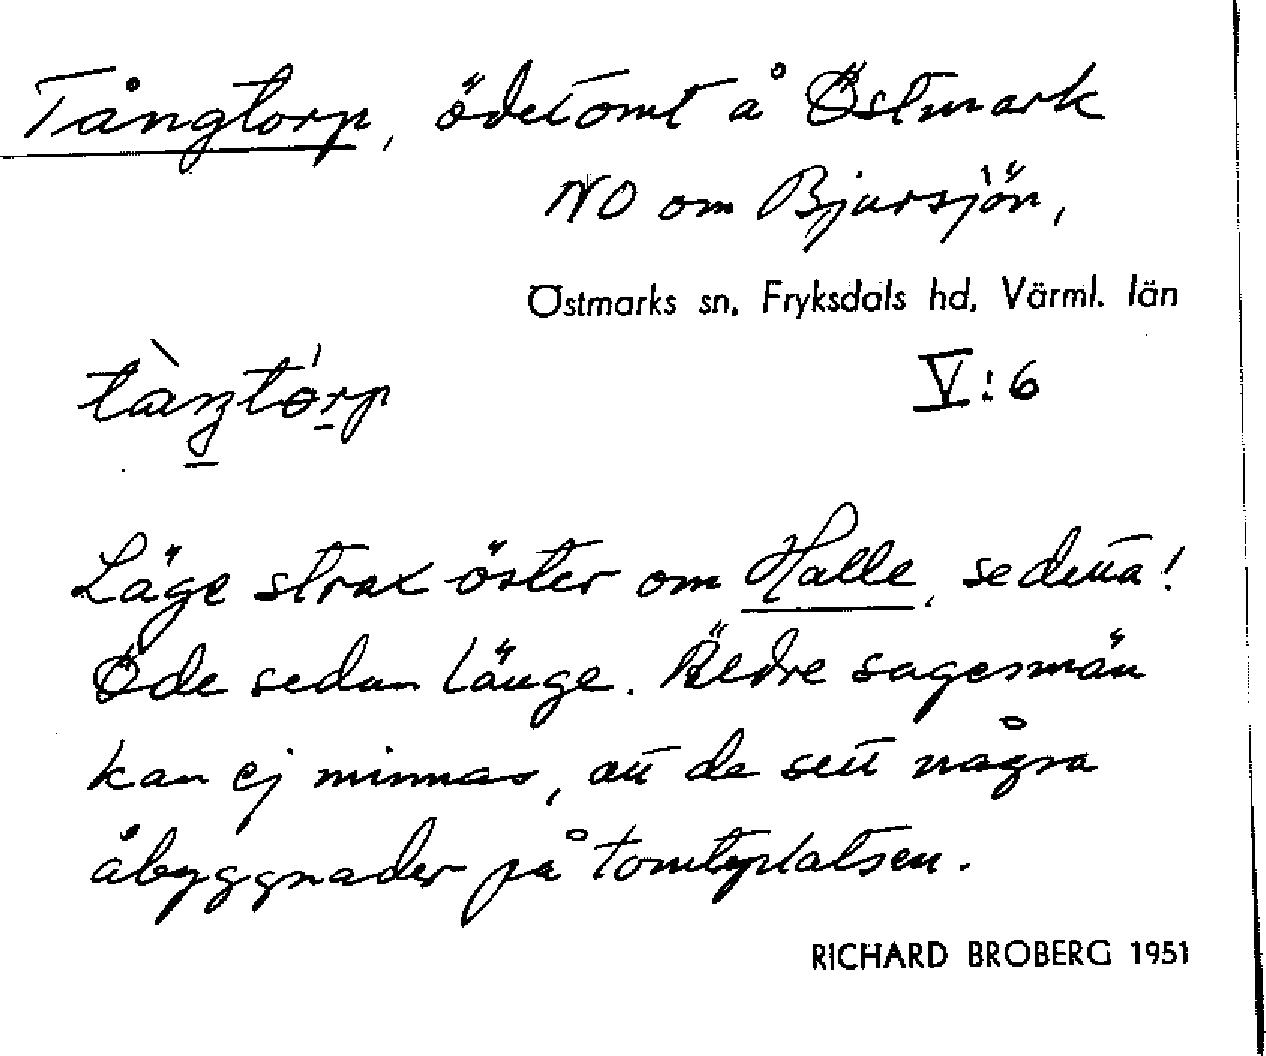 Tångtorp, ödetomt å Östmark
NO om Bjursjön,
Östmarks sn, Fryksdals hd, Värml. län
V:6
Läge strax öster om Halle, se detta!
Öde sedan länge. Äldre sagesmän
kan ej minnas, att de sett några
åbyggnader på tomtplatsen.
RICHARD BROBERG 1951